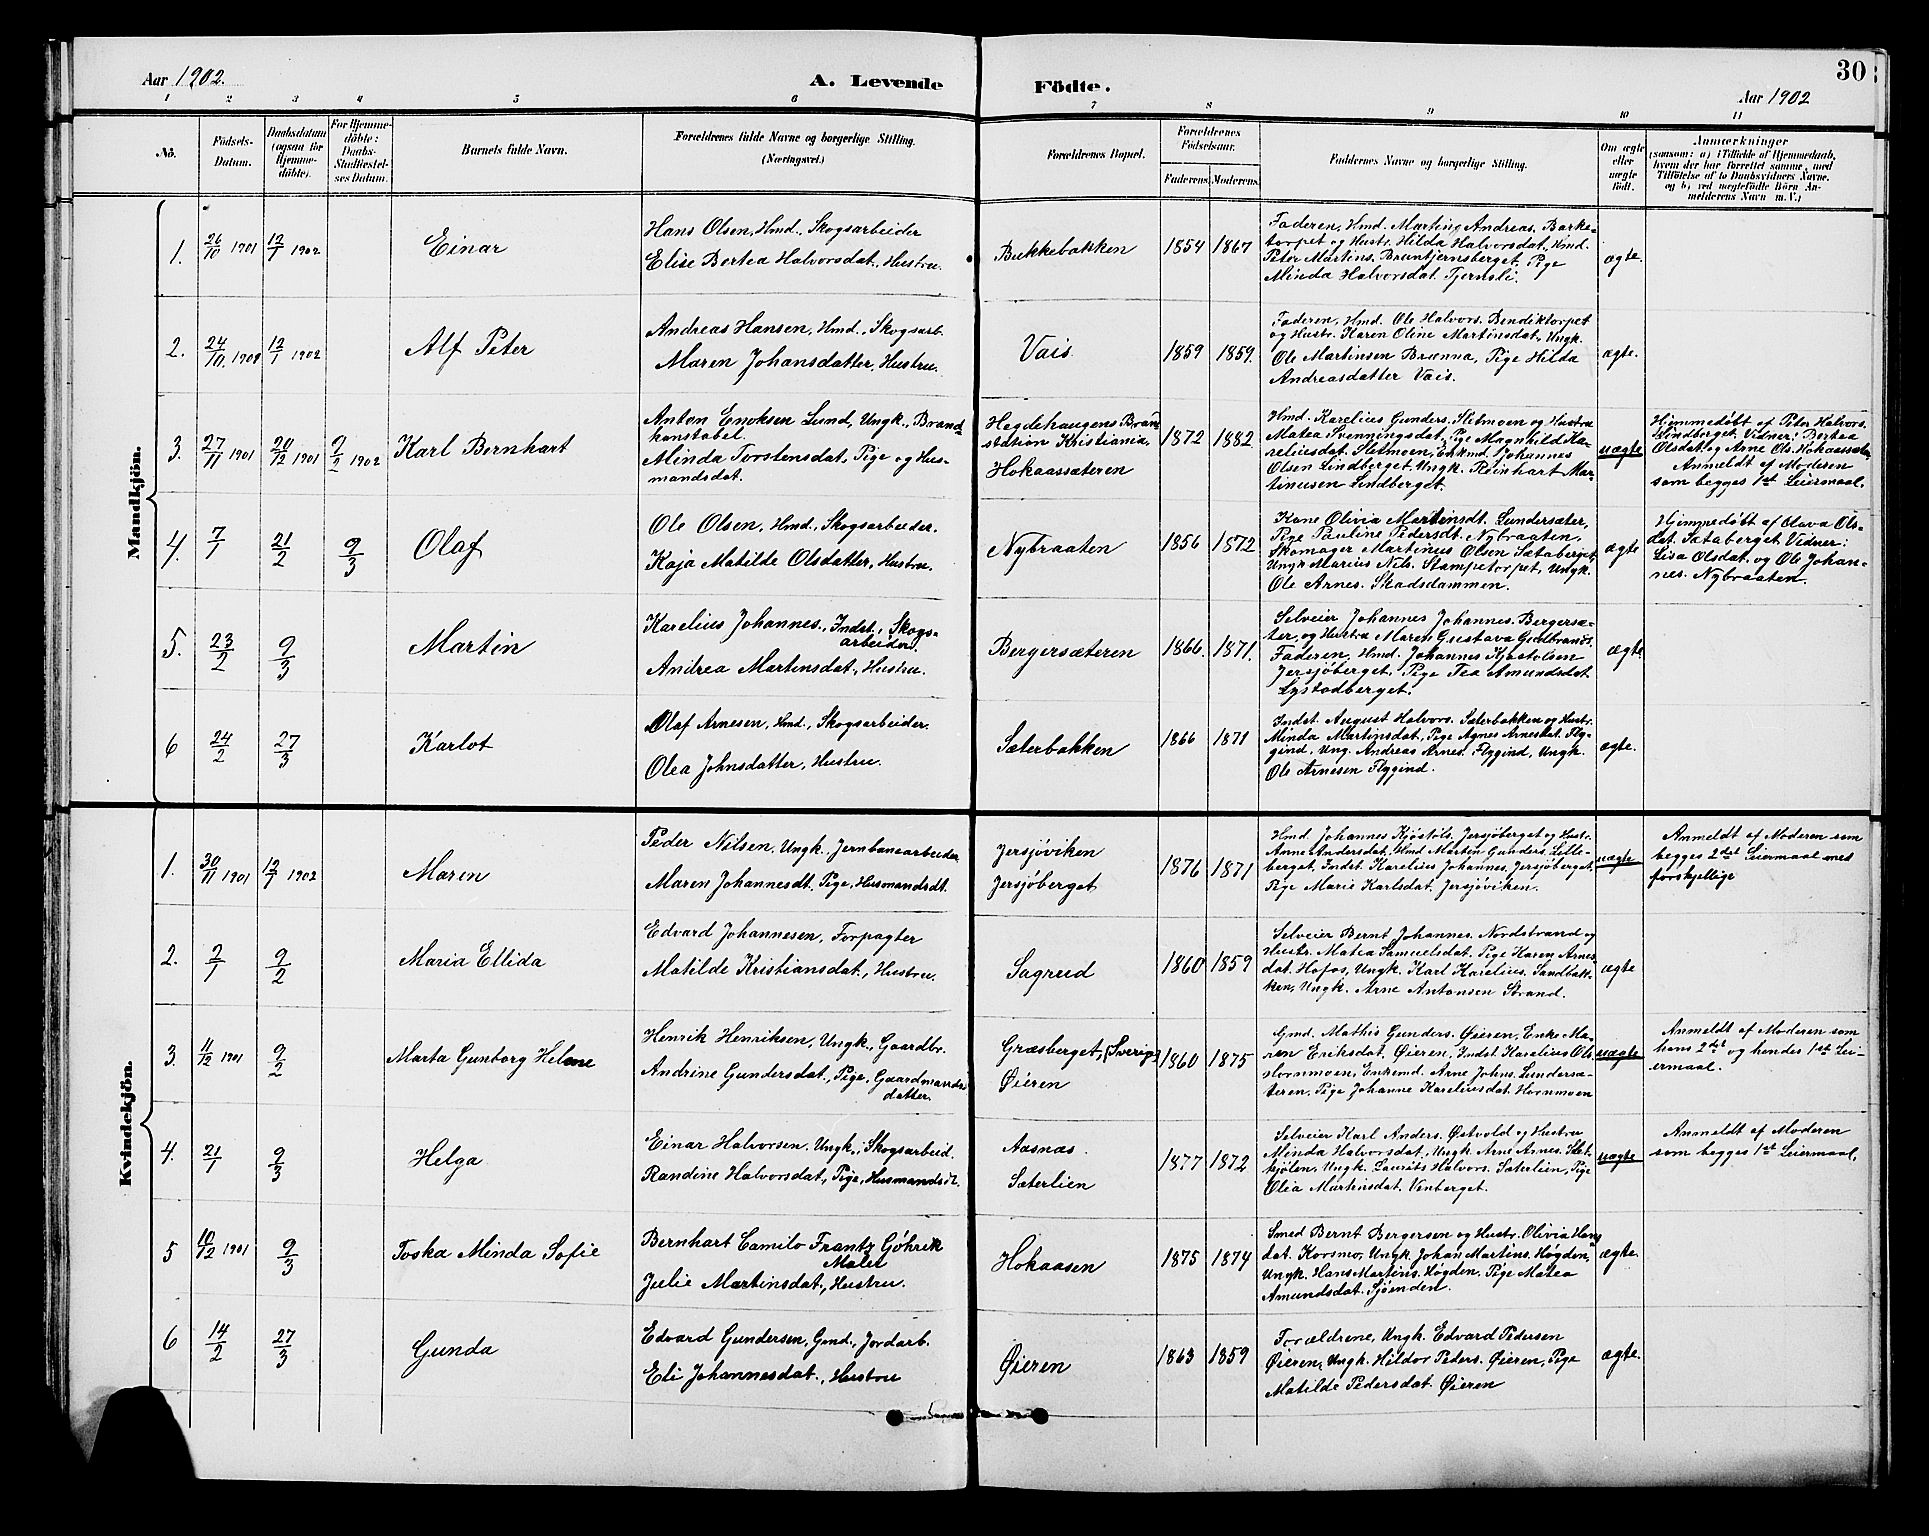 Aar 1902.
A. Levende Födte.
30
Aar 1902
1 2 3 4 5 6 7 8 9 10 11
No.
Födsels-Datum.
Daabsdatum (ogsaa for Hjemme-döbte).
For Hjemme-döbte: Daabs-Stadfæstel-ses Datum.
Barnets fulde Navn.
Forældrenes fulde Navne og borgerlige Stilling.
(Næringsvei.)
Forældrenes Bopæl.
Forældrenes Födselsaar.
Faderens. Moderens.
Faddernes Navne og borgerlige Stilling.
Om ægte eller uægte födt.
Anmærkninger
(saasom: a) i Tilfælde af Hjemmedaab,
hvem der har forrettet samme, med
Tilföielse af to Daabsvidners Navne,
og b) ved uægtefödte Börn An-
melderens Navn m. V.)
Mandkjön.
1. 26/10 1901 12/1 1902 Einar
Hans Olsen, Hmd., Skogsarbeider
Elise Bertea Halvorsdat., Hustru.
Bukkebakken 1854 1867
Faderen, Hmd. Martinq Andreas. Barke-
torpet og Hustr. Hilda Halvorsdat, Hmd.
Peter Martins. Bruntjernsberget, Pige
Minda Halvorsdat. Tjernsli.
ægte.
2. 24/10. 1901 12/1 1902 Alf Peter
Andreas Hansen, Hmd., Skogsarb.
Maren Johansdatter, Hustru.
Vais. 1859 1859.
Faderen, Hmd. Ole Halvors. Bendiktorpet
og Hustr. Karen Oline Martinsdat., Ungk.
Ole Martinsen Brænna, Pige Hilda
Andreasdatter Vais.
ægte.
3. 27/11 1901 20/12 1901 2/2 1902 Karl Bernhart
Anton Enoksen Lund, Ungk., Brand-
konstabel.
Minda Torstensdat., Pige og Hus-
mandsdat.
Hegdehaugens Brand-
station Kristiania,
Hokaassæteren
1872 1882
Hmd. Karelius Gunders. Sletmoen og Hustru
Matea Svenningsdat., Pige Magnhild Ka-
reliusdat. Sletmoen, Enkmd. Johannes
Olsen Lindberget, Ungk. Reinhart Mar-
tinusen Lindberget.
uægte
Hjemmedøbt af Peter Halvors.
Windberget. Vidner: Bertea
Olsdat. og Arne Ols. Hokaassæter
Anmeldt af Modsen
som begges 1st Leiermaal.
4. 7/1 21/2 9/3 Olaf
Ole Olsen, Hmd., Skogsarbeider.
Kaja Matilde Olsdatter, Hustru.
Nybraaten 1856 1872
Kone Olivia Martinsdt. Lundersæter,
Pige Pauline Pedersdt. Nybraaten,
Skomager Martinus Olsen Sætaberget,
Ungk Marius Nils. Stampetorpet, Ungk.
Ole Arnes. Skadsdammen.
ægte
Hjemmedøbt af Olava Ols-
dat. Sætaberget. Vidner:
Lisa Olsdat. og Ole Johan-
nes. Nybraaten.
5. 23/2 9/3 Martin
Karelius Johannes., Indst., Skogs-
arbeider.
Andrea Martinsdat., Hustru.
Bergersæteren 1866. 1871.
Selveier Johannes Johannes. Bergersæ-
ter, og Hustru Maren Gustava Guldbrands.
Faderen, Hmd. Johannes Kjøstolsen
Jersjöberget, Pige Tea Amundsdat
Lystadberget.
ægte.
6 24/2 27/3 Karlot
Olaf Arnesen, Hmd., Skogsarbeider.
Olea Johnsdatter, Hustru.
Sæterbakken 1866 1871
Indst. August Halvors. Sæterbakken og Hustr.
Minda Martinsdat., Pige Agnes Arnesdat. Fly-
gind, Ung. Andreas Arnes. Flygind, Ungk.
Ole Arnesen Flygind.
ægte.
Kvindekjön.
1. 30/11 1901 12/1 1902 Maren
Peder Nilsen, Ungk., Jernbanearbeider
Maren Johannesdt., Pige, Husmandsdt.
Jersjöviken
Jersjöberget
1876 1871
Hmd. Johannes Kjöstols. Jersjöberget og Hust.
Anne Andersdat., Hmd Marten Gunders Lille-
berget, Indst. Karelius Johannes. Jersjöberget.
Pige Marie Karlsdat. Jersjöviken.
uægte
Anmeldt af Moderen som
begges 2det Leiermaal med
forskjellige
2. 2/1 9/2 Maria Ellida
Edvard Johannesen, Forpagter
Matilde Kristiansdat., Hustru.
Sagrud 1860 1859
Selveier Bernt Johannes. Nordstrand og
Hustr. Matea Samuelsdat, Pige Karen Arnes
dat. Hofos, Ungk. Karl Karelius. Sandbak-
ken, Ungk. Arne Antonsen Strand.
ægte
3. 11/12 1901 9/2 Marta Gunborg Helene
Henrik Henriksen, Ungk., Gaardbr.
Andrine Gundersdat., Pige, Gaardmands-
datter.
Græsberget, (Sverige)
Øieren
1860 1875
Gmd. Mathis Gunders. Øieren, Enke Ma-
ren Eriksdat, Øieren, Indst. Karelius Ols.
Hornmoen, Enkemd. Arne Johns. Lundersæ-
teren, Pige Johanne Kareliusdat. Hornmoen
uægte
Anmeldt af Moderen som
hans 2det og hendes 1st Lei-
ermaal.
4. 21/1 9/3 Helga
Einar Halvorsen, Ungk., Skogsarbeid.
Randine Halvorsdat., Pige, Husmandsdt.
Aasnæs.
Sæterlien
1877 1872
Selveier Karl Anders. Østvold og Hustru
Minda Halvorsdat. Ungk. Arne Arnes. Slet-
kjölen, Ungk. Laurits Halvors. Sæterlien, Pige
Olea Martinsdat. Venberget.
uægte
Anmeldt af Moderen
som begges 1st Leiermaal.
5 10/12 1901 9/3 Toska Minda Sofie
Bernhart Camilo Frantz Göhrik
Maler
Julie Martinsdat., Hustru.
Hokaasen 1875 1874
Smed Bernt Bergersen og Hustr. Olivia Hans
dat. Korsmo, Ungk. Johan Martins. Høgden,
Ungk. Hans Martins. Høgden. Pige Matea
Amundsdat. Sjøenden.
ægte.
6 14/2 27/3 Gunda
Edvard Gundersen, Gmd., Jordarb.
Eli Johannesdat., Hustru
Øieren 1863 1859
Forældrene, Ungk. Edvard Pedersen
Øieren, Ungk. Hildor Peders. Øieren, Pige
Matilde Pedersdat. Øieren
ægte.